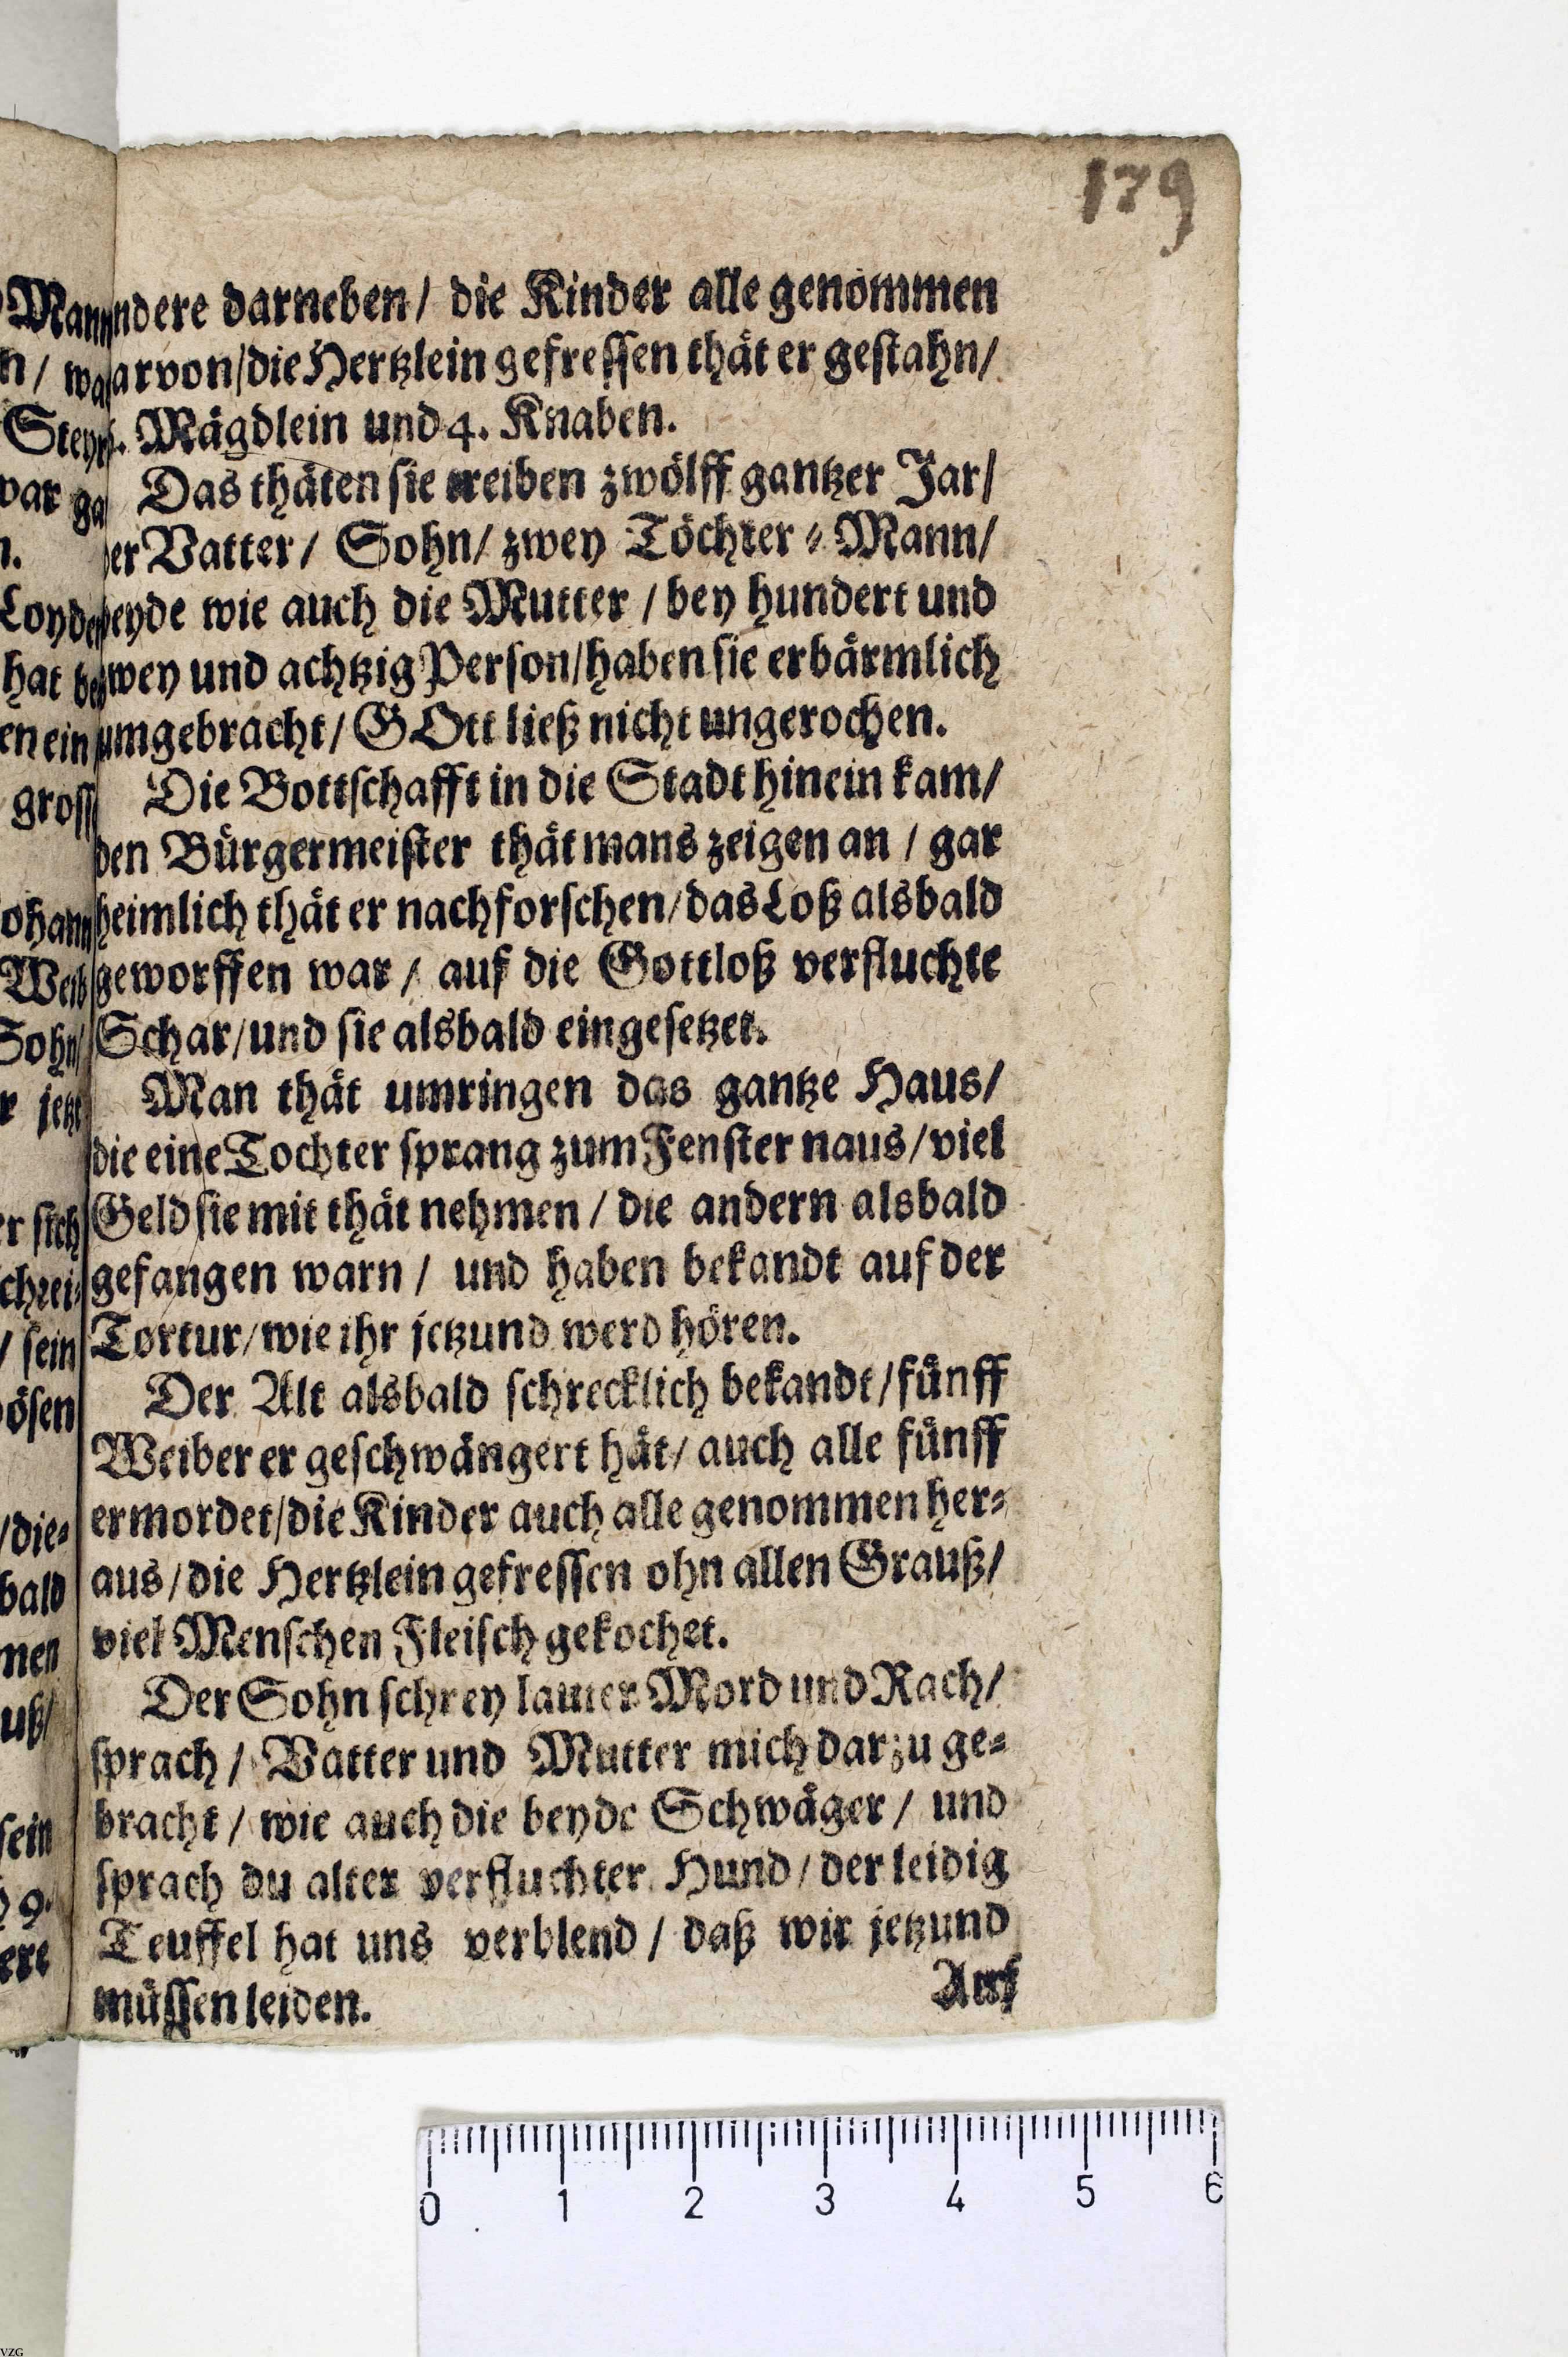 179
ndere darneben/ die Kinder alle genommen
arvon/die Hertzlein gefressen thät er gestahn/
. Mägdlein und 4. Knaben.
Das thäten sie treiben zwölff gantzer Jar/
er Vatter/ Sohn/ zwey Töchter = Mann/
beyde wie auch die Mutter / bey hundert und
wey und achtzig Person/haben sie erbärmlich
umgebracht/ GOtt ließ nicht ungerochen.
Die Bottschafft in die Stadt hinein kam/
den Bürgermeister thät mans zeigen an / gar
heimlich thät er nachforschen/das Loß alsbald
geworffen war / auf die Gottloß verfluchte
Schar/und sie alsbald eingesetzet.
Man thät umringen das gantze Haus/
die eine Tochter sprang zum Fenster naus/viel
Geld sie mit thät nehmen / die andern alsbald
gefangen warn / und haben bekandt auf der
Tortur/wie ihr jetzund werd hören.
Der Alt alsbald schrecklich bekandt/fünff
Weiber er geschwängert hät/ auch alle fünff
ermordet/die Kinder auch alle genommen her=
aus/die Hertzlein gefressen ohn allen Grauß/
viel Menschen Fleisch gekochet.
Der Sohn schrey lauter Mord und Rach/
sprach / Vatter und Mutter mich darzu ge=
bracht / wie auch die beyde Schwäger / und
sprach du alter verfluchter Hund/der leidig
Teuffel hat uns verblend / daß wir jetzund
müssen leiden.
Auf
Mann
n/ wa
Steyr
var ga
n.
Loyde
hat be
en ein
gross
ohann
Weib
Sohn/
r jetzt
er sich
schrei=
/ sein
ösen
/die=
bald
men
uß/
sein
h 9.
ere
0 1 2 3 4 5 6
VZG